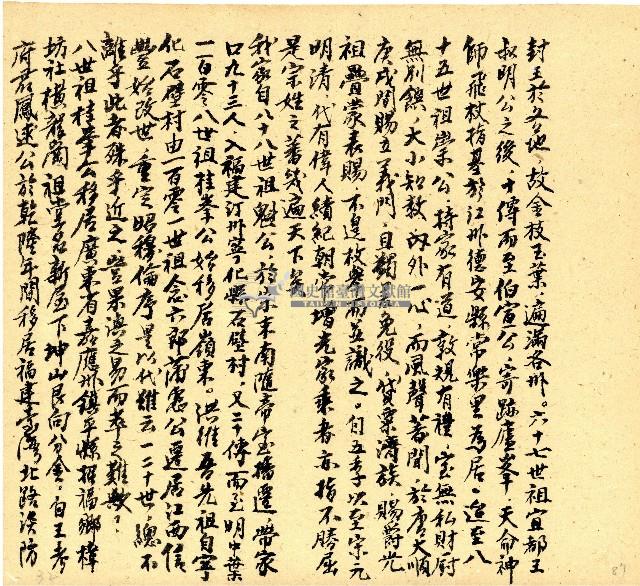 封王於各地、故金枝玉葉、遍滿各卅。六十七世祖宜都王
叔明公之後、十傳而至伯宣公、寄跡廬峯、天命神
師飛杖指基於江州德安縣常樂里為居。迨至八
十五世祖崇公、持家有道、敦規有禮、室無私財厨
無別饌、大小知教、內外一心、而風聲著聞、於唐大順
庚戌間賜立義門、自蠲免役、貸粟濟族、賜爵光
祖疊蒙表賜、不遑枚舉而並識之。自五季以至宋元
明清、代有偉人續紀朝常增光家乘者亦指不勝屈
是宗姓之蕃幾遍天下矣
我家自八十八世祖魁公、於宋末南隨帝室播遷、帶家
口九十三人、入福建汀州寧化縣石壁村、又二十傳而至明中葉
一百零八世祖桂峯公始移居嶺東。洪維吾先祖自寧
化石壁村由一百零一世祖念六郎蒲憲公遷居江西信
豐始改世、重定昭穆倫序是以代雖云一二十世、總不
離乎此者殊乎近之豈果淇之易而考之難歟、
八世祖桂峯公移居廣東省嘉應州鎮平縣招福鄉樟
坊社橫崗祖堂名新屋下坤山艮向分金、自王考
府君鳳逑公於乾隆年間移居福建臺灣北路淡防
國史館臺灣文獻館
TAIWAN HISTORICA